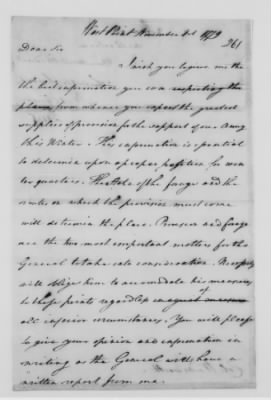 West Point November 4th 1779
261
Dear Sir
I wish you to give me the
the best information you can respecting the
places from whence you expect the greatest
supplies of provision for the support of our Army
this Winter. This information is essential
to determine upon a proper position for win-
ter quarters. The state of the forage and the
routes on which the provision must come
will determine the place. Provision and forage
are the two most important matters for the
General to take into consideration. Necessity
will oblige him to accomodate his measures
to those points regardless of
all inferior circumstances. You will please
to give your opinion and information in
writing as the General will have a
written report from me.